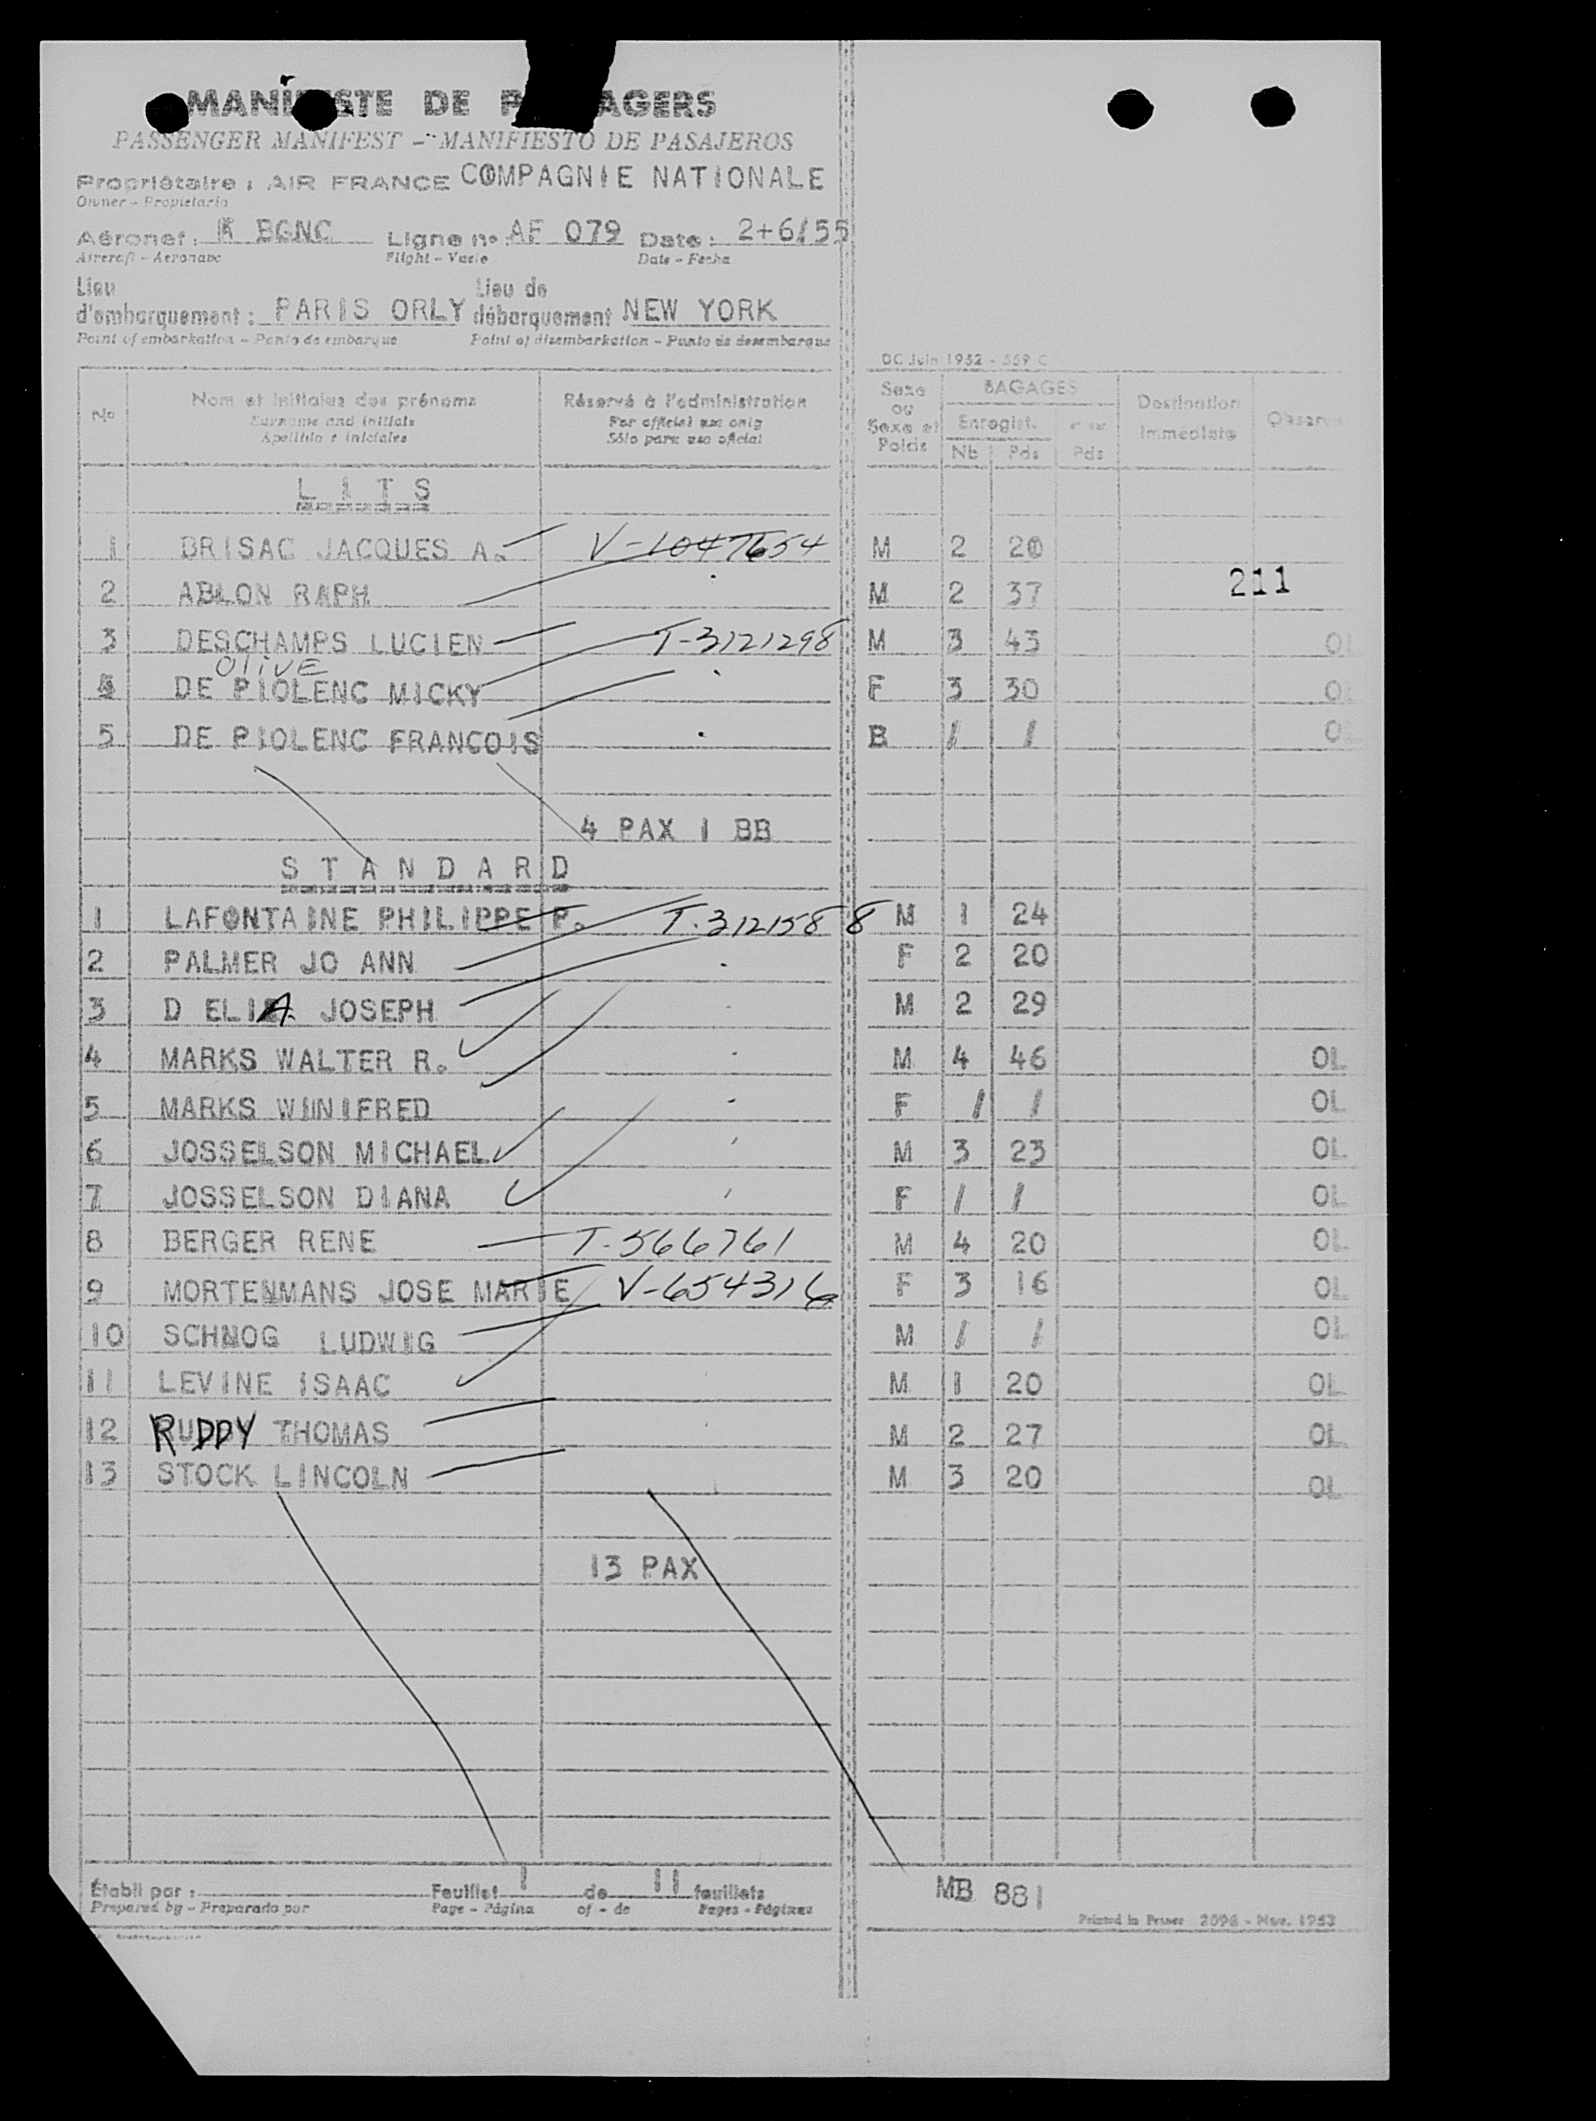 MANIFESTE DE PASSAGERS
PASSENGER MANIFEST - MANIFIESTO DE PASAJEROS
Propriétaire : AIR FRANCE COMPAGNIE NATIONALE
Owner - Propietario
Aéronef : BGNC Ligne no AF 079 Date : 2+6/55
Aircraft - Aeronave Flight - Vuelo Date - Fecha
Lieu d'embarquement : PARIS ORLY Lieu de débarquement NEW YORK
Point of embarkation - Punto de embarque Point of disembarkation - Punto de desembarque
DC Juin 1952 - 559 C
No Nom et initiales des prénoms Réservé à l'administration Sexe ou Sexe et Poids BAGAGES Destination immédiate
Surname and initials For official use only Enregist.
Apellido e iniciales Sólo para uso oficial Nb Pds Pds
L I T S
1 BRISAC JACQUES A. V-1047654 M 2 20
2 ABLON RAPH M 2 37 211
3 DESCHAMPS LUCIEN T-3121298 M 3 43 OL
OLIVE
4 DE PIOLENC MICKY F 3 30 OL
5 DE PIOLENC FRANCOIS B / / OL
4 PAX 1 BB
S T A N D A R D
1 LAFONTAINE PHILIPPE P. T.3121588 M 1 24
2 PALMER JO ANN F 2 20
3 D ELIA JOSEPH M 2 29
4 MARKS WALTER R. M 4 46 OL
5 MARKS WINIFRED F / / OL
6 JOSSELSON MICHAEL M 3 23 OL
7 JOSSELSON DIANA F / / OL
8 BERGER RENE T-566761 M 4 20 OL
9 MORTENMANS JOSE MARIE V-654316 F 3 16 OL
10 SCHNOG LUDWIG M / / OL
11 LEVINE ISAAC M 1 20 OL
12 RUDDY THOMAS M 2 27 OL
13 STOCK LINCOLN M 3 20 OL
13 PAX
Établi par : Feuillet 1 de 11 feuillets MB 881
Prepared by - Preparado por Page - Página of - de Pages - Páginas
Printed in France 2098 - Nov. 1953